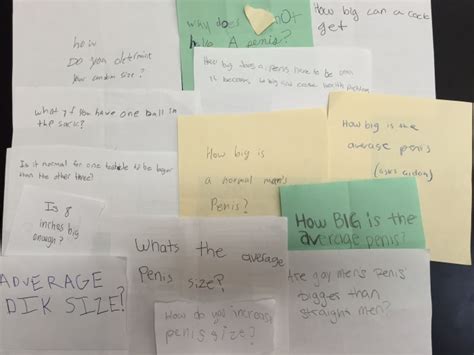 how
Do you determine
your condom size?
why does
have A penis?
How big can a cock
get
How big does a penis have to be
is become to big and cause health
what if you have one ball in
the sack?
How big is
a normal man's
Penis?
How big is the
average penis
Is it normal for one testicle to be bigger
than the other three?
Is 8
inches big
enough?
Whats the average
Penis size?
HOW BIG is the
average penis?
ADVERAGE
DIK SIZE?
How do you increase
penis size?
Are gay mens penis
bigger than
straight men?